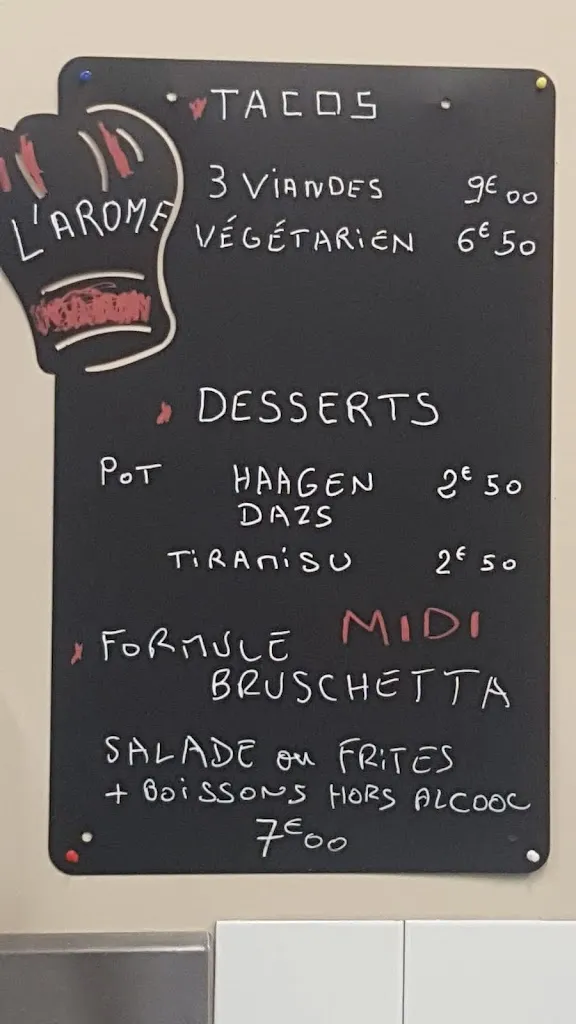 L'AROME
TACOS
3 VIANDES 9€00
VÉGÉTARIEN 6€50
DESSERTS
POT HAAGEN 2€50
DAZS
TIRAMISU 2€50
FORMULE MIDI
BRUSCHETTA
SALADE ou FRITES
+ BOISSONS HORS ALCOOL
7€00